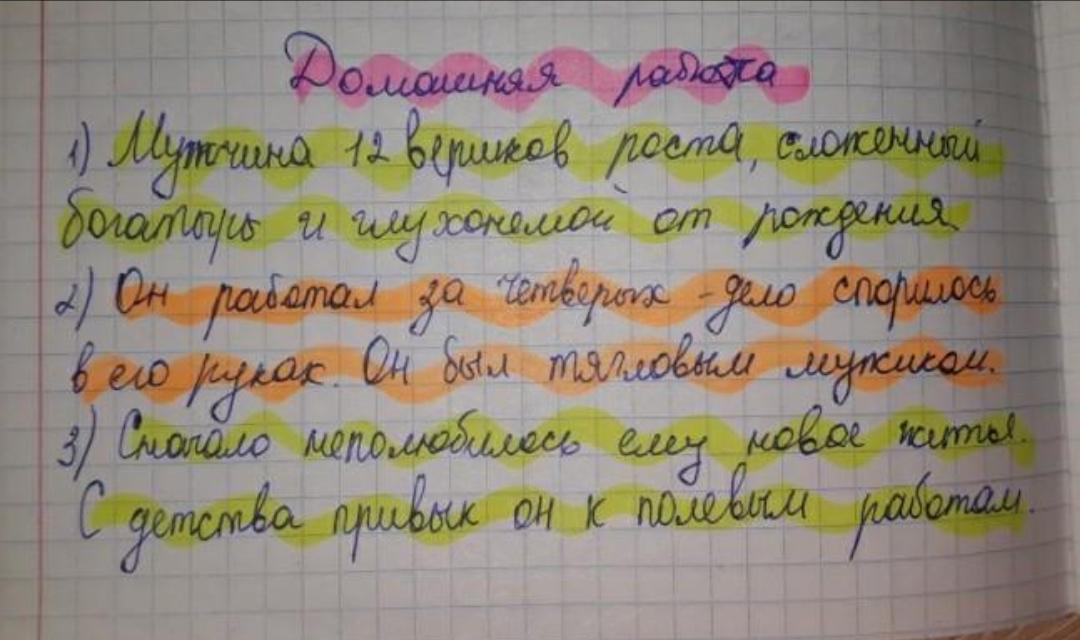 Домашняя работа
1) Мужчина 12 вершков роста, сложенный
богатырь и глухонемой от рождения
2) Он работал за четверых - дело спорилось
в его руках. Он был тягловым мужиком.
3) Сначало неполюбилось ему новое житьё.
С детства привык он к полевым работам.